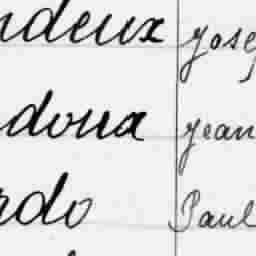 ndeux Jose
doux Jean
rdo Paul